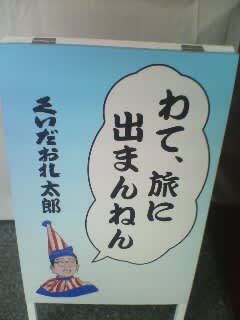 わて、旅に
出まんねん
くいだおれ太郎